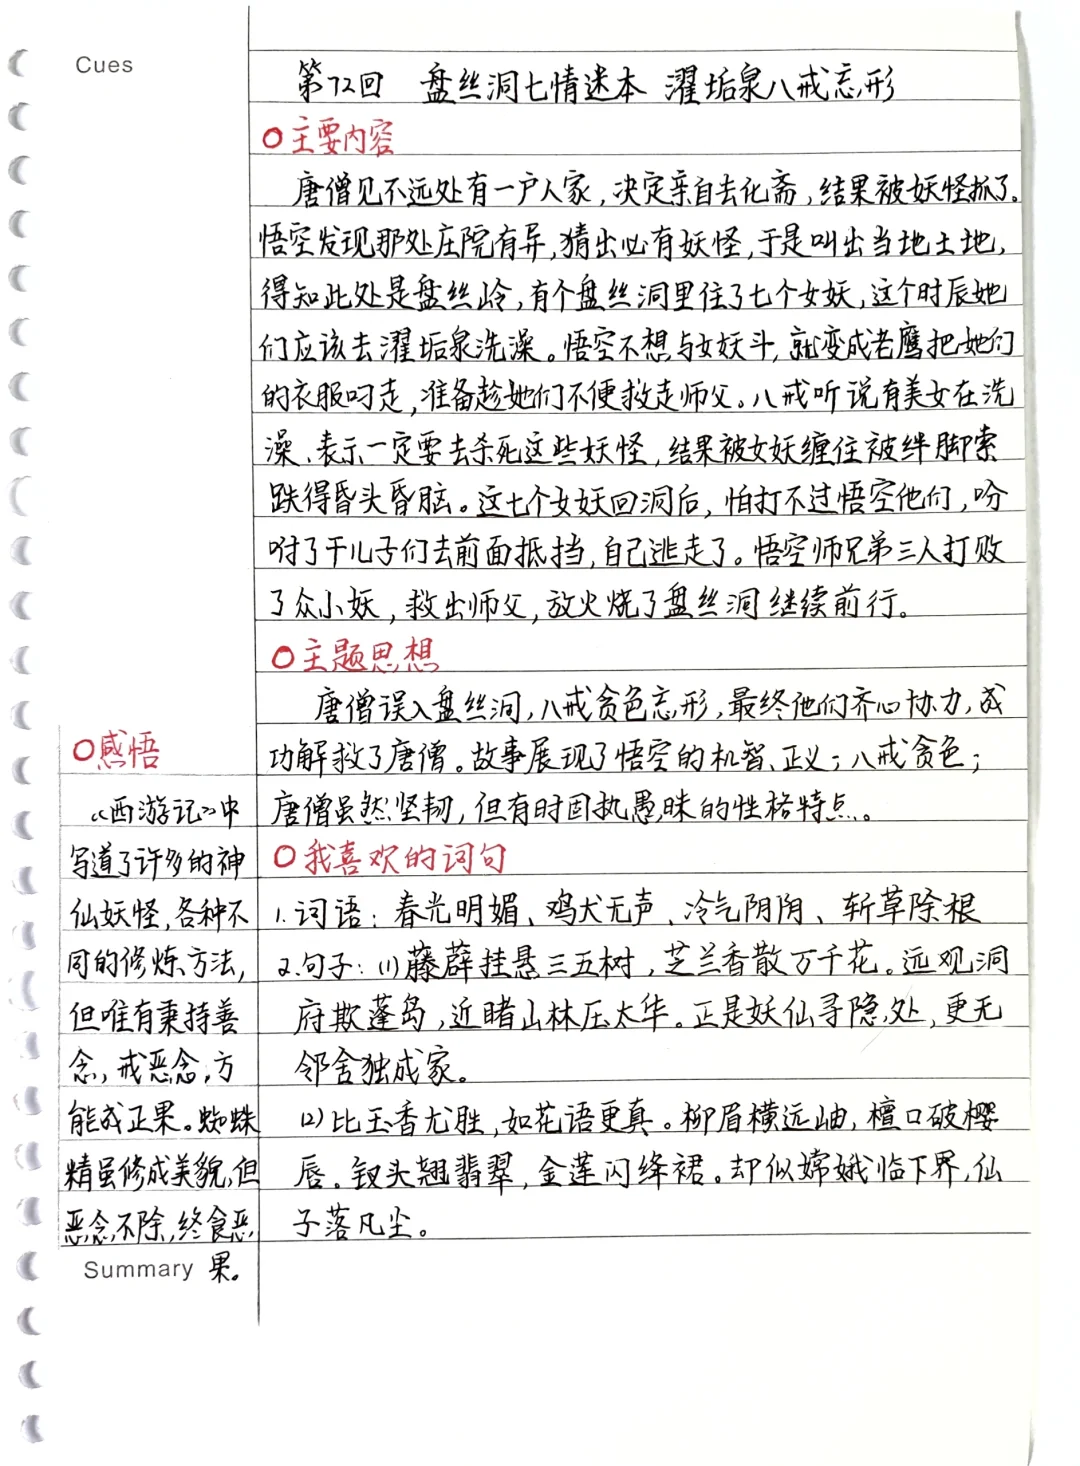 Cues
第72回 盘丝洞七情迷本 濯垢泉八戒忘形
○主要内容
唐僧见不远处有一户人家，决定亲自去化斋，结果被妖怪抓了。
悟空发现那处庄院有异，猜出必有妖怪，于是叫出当地土地，
得知此处是盘丝岭，有个盘丝洞里住了七个女妖，这个时辰她
们应该去濯垢泉洗澡。悟空不想与女妖斗，就变成老鹰把她们
的衣服叼走，准备趁她们不便救走师父。八戒听说有美女在洗
澡、表示一定要去杀死这些妖怪，结果被女妖缠住被绊脚索
跌得昏头昏脑。这七个女妖回洞后，怕打不过悟空他们，吩
咐了干儿子们去前面抵挡，自己逃走了。悟空师兄弟三人打败
了众小妖，救出师父，放火烧了盘丝洞继续前行。
○主题思想
唐僧误入盘丝洞，八戒贪色忘形，最终他们齐心协力，成
功解救了唐僧。故事展现了悟空的机智、正义；八戒贪色；
唐僧虽然坚韧，但有时固执愚昧的性格特点。
○我喜欢的词句
1.词语：春光明媚、鸡犬无声、冷气阴阴、斩草除根
2.句子：(1)藤薜挂悬三五树，芝兰香散万千花。远观洞
府欺蓬岛，近睹山林压太华。正是妖仙寻隐处，更无
邻舍独成家。
(2)比玉香尤胜，如花语更真。柳眉横远岫，檀口破樱
唇。钗头翘翡翠，金莲闪绛裙。却似嫦娥临下界，仙
子落凡尘。
○感悟
《西游记》中
写道了许多的神
仙妖怪，各种不
同的修炼方法，
但唯有秉持善
念，戒恶念，方
能成正果。蜘蛛
精虽修成美貌，但
恶念不除，终食恶
果。
Summary